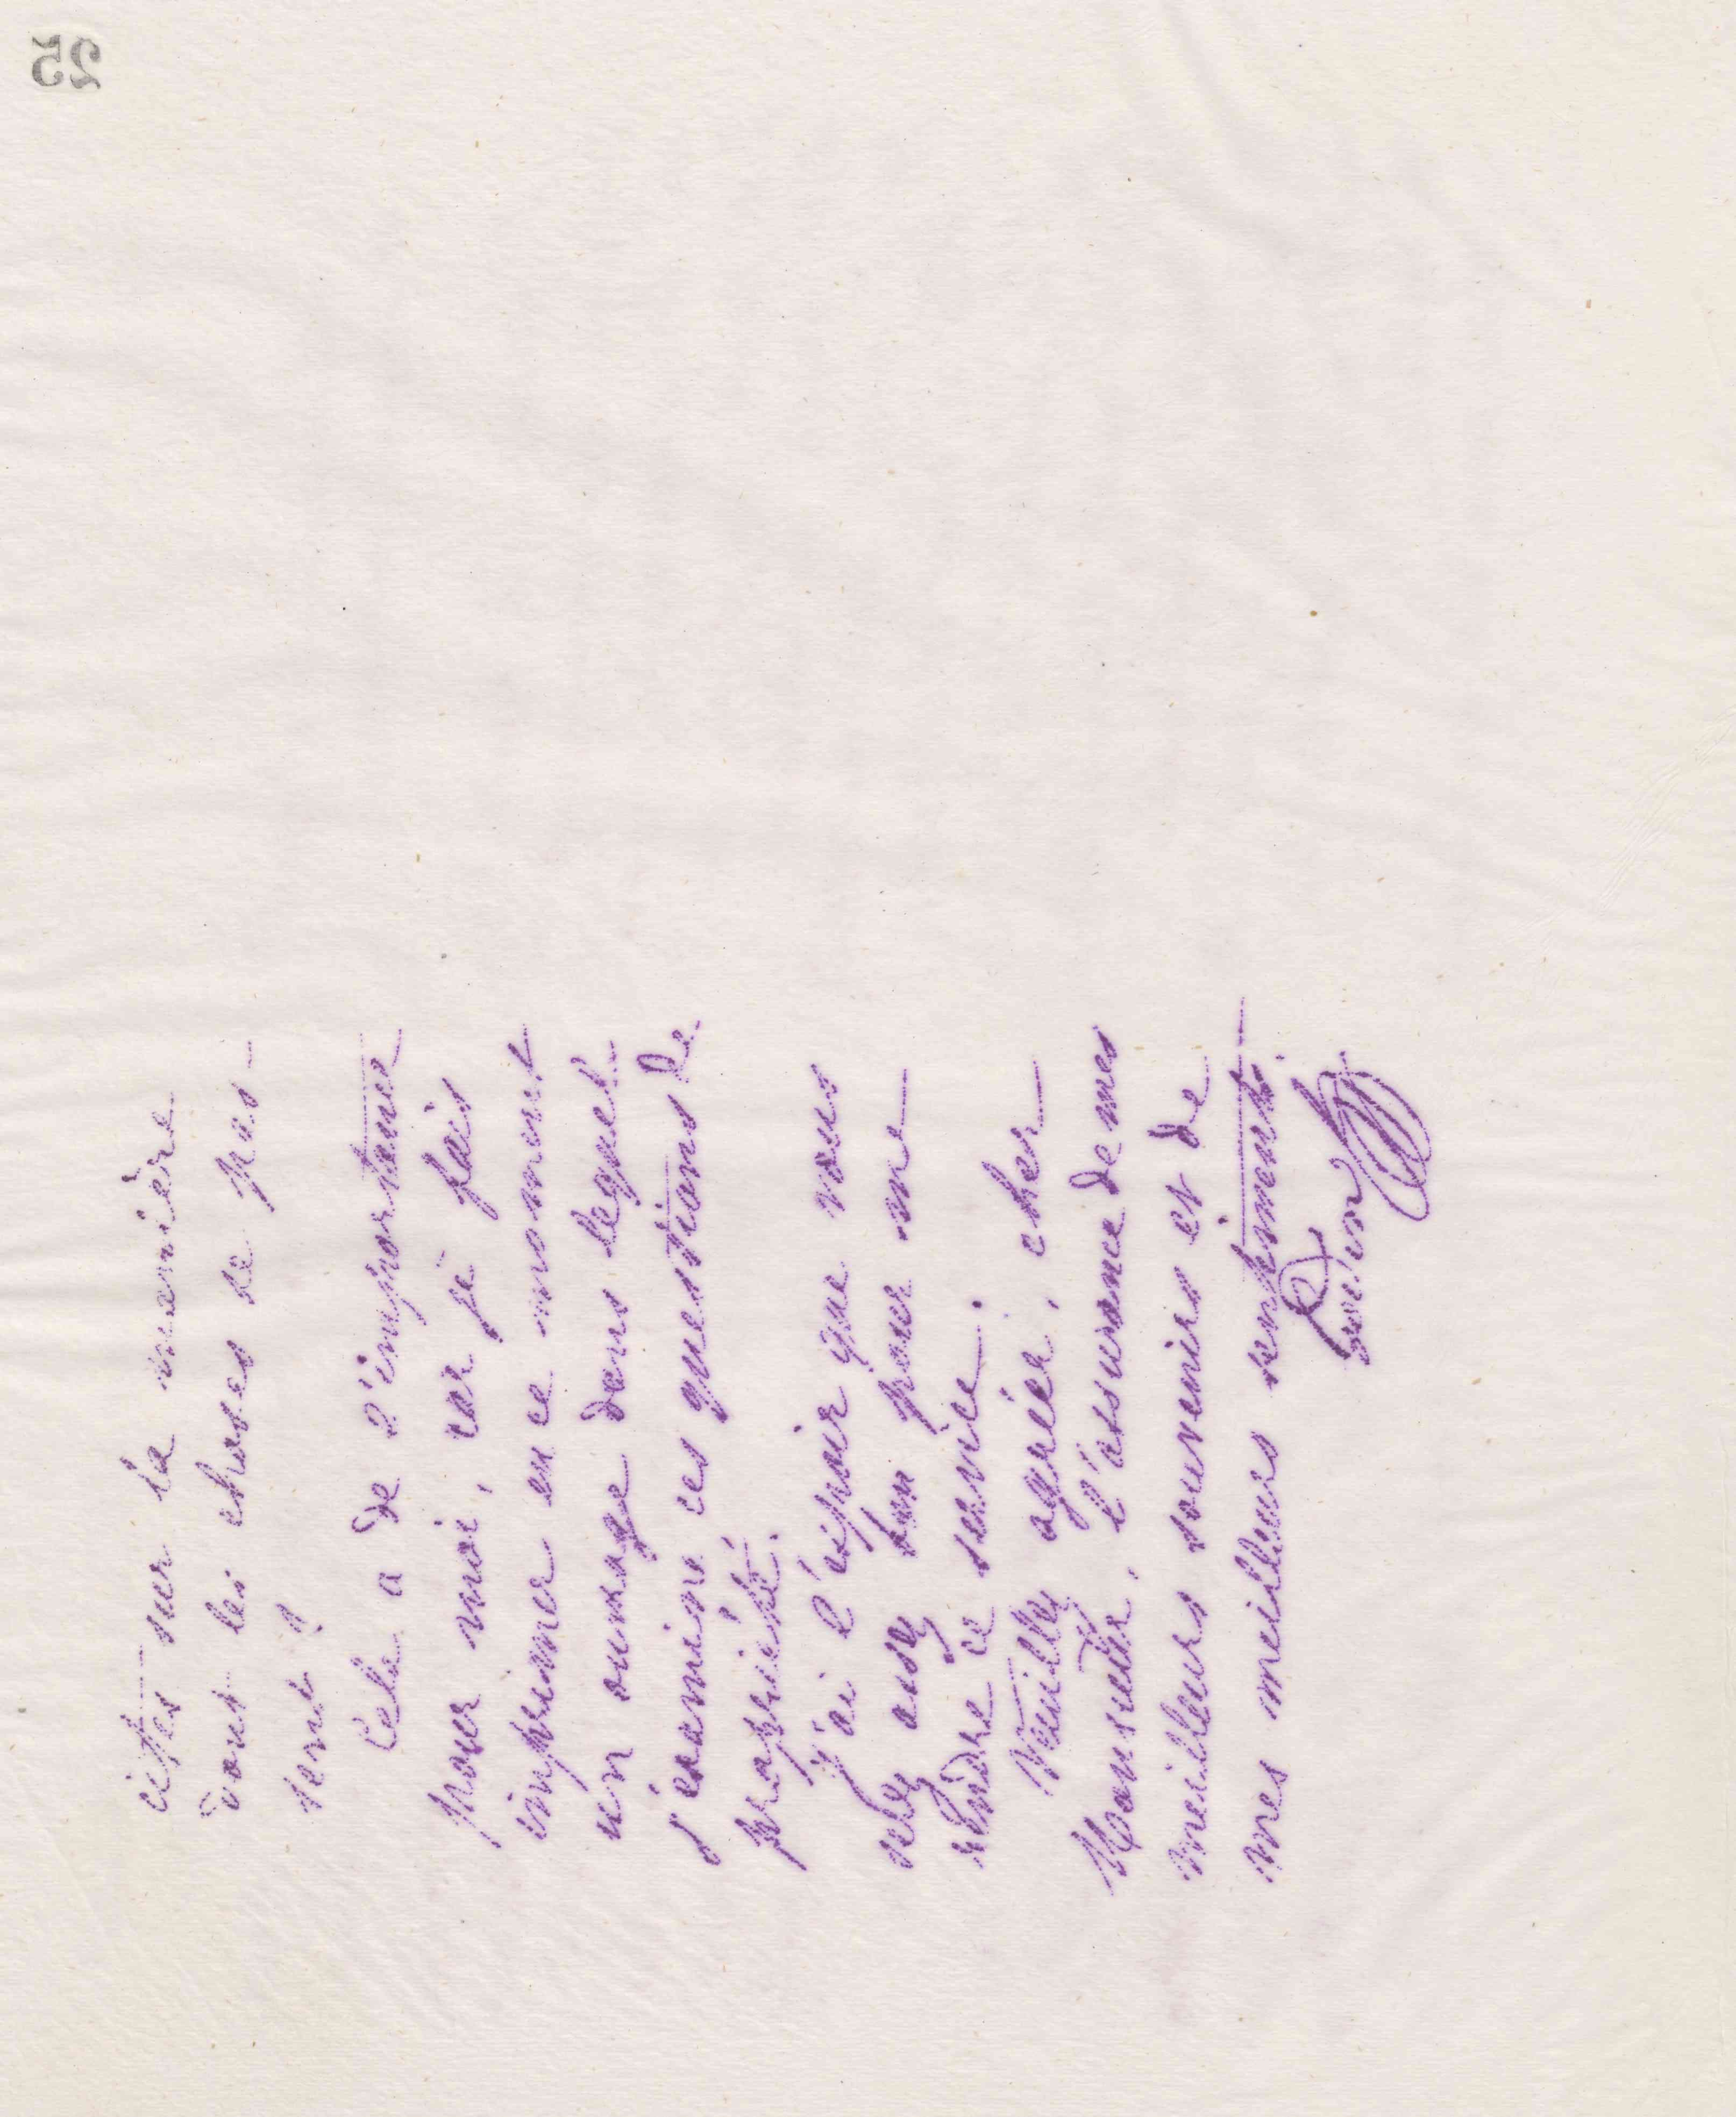 25
cites sur la manière
dont les choses se pas-
sent?
Cela a de l'importance
pour moi, car je fais
imprimer en ce moment
un ouvrage dans lequel
j'examine ces questions de
propriété.
J'ai l'espoir que vous
serez assez bon pour me
rendre ce service.
Veuillez agréer, cher
Monsieur, l'assurance de mes
meilleurs souvenirs et de
mes meilleurs sentiments.
Godin